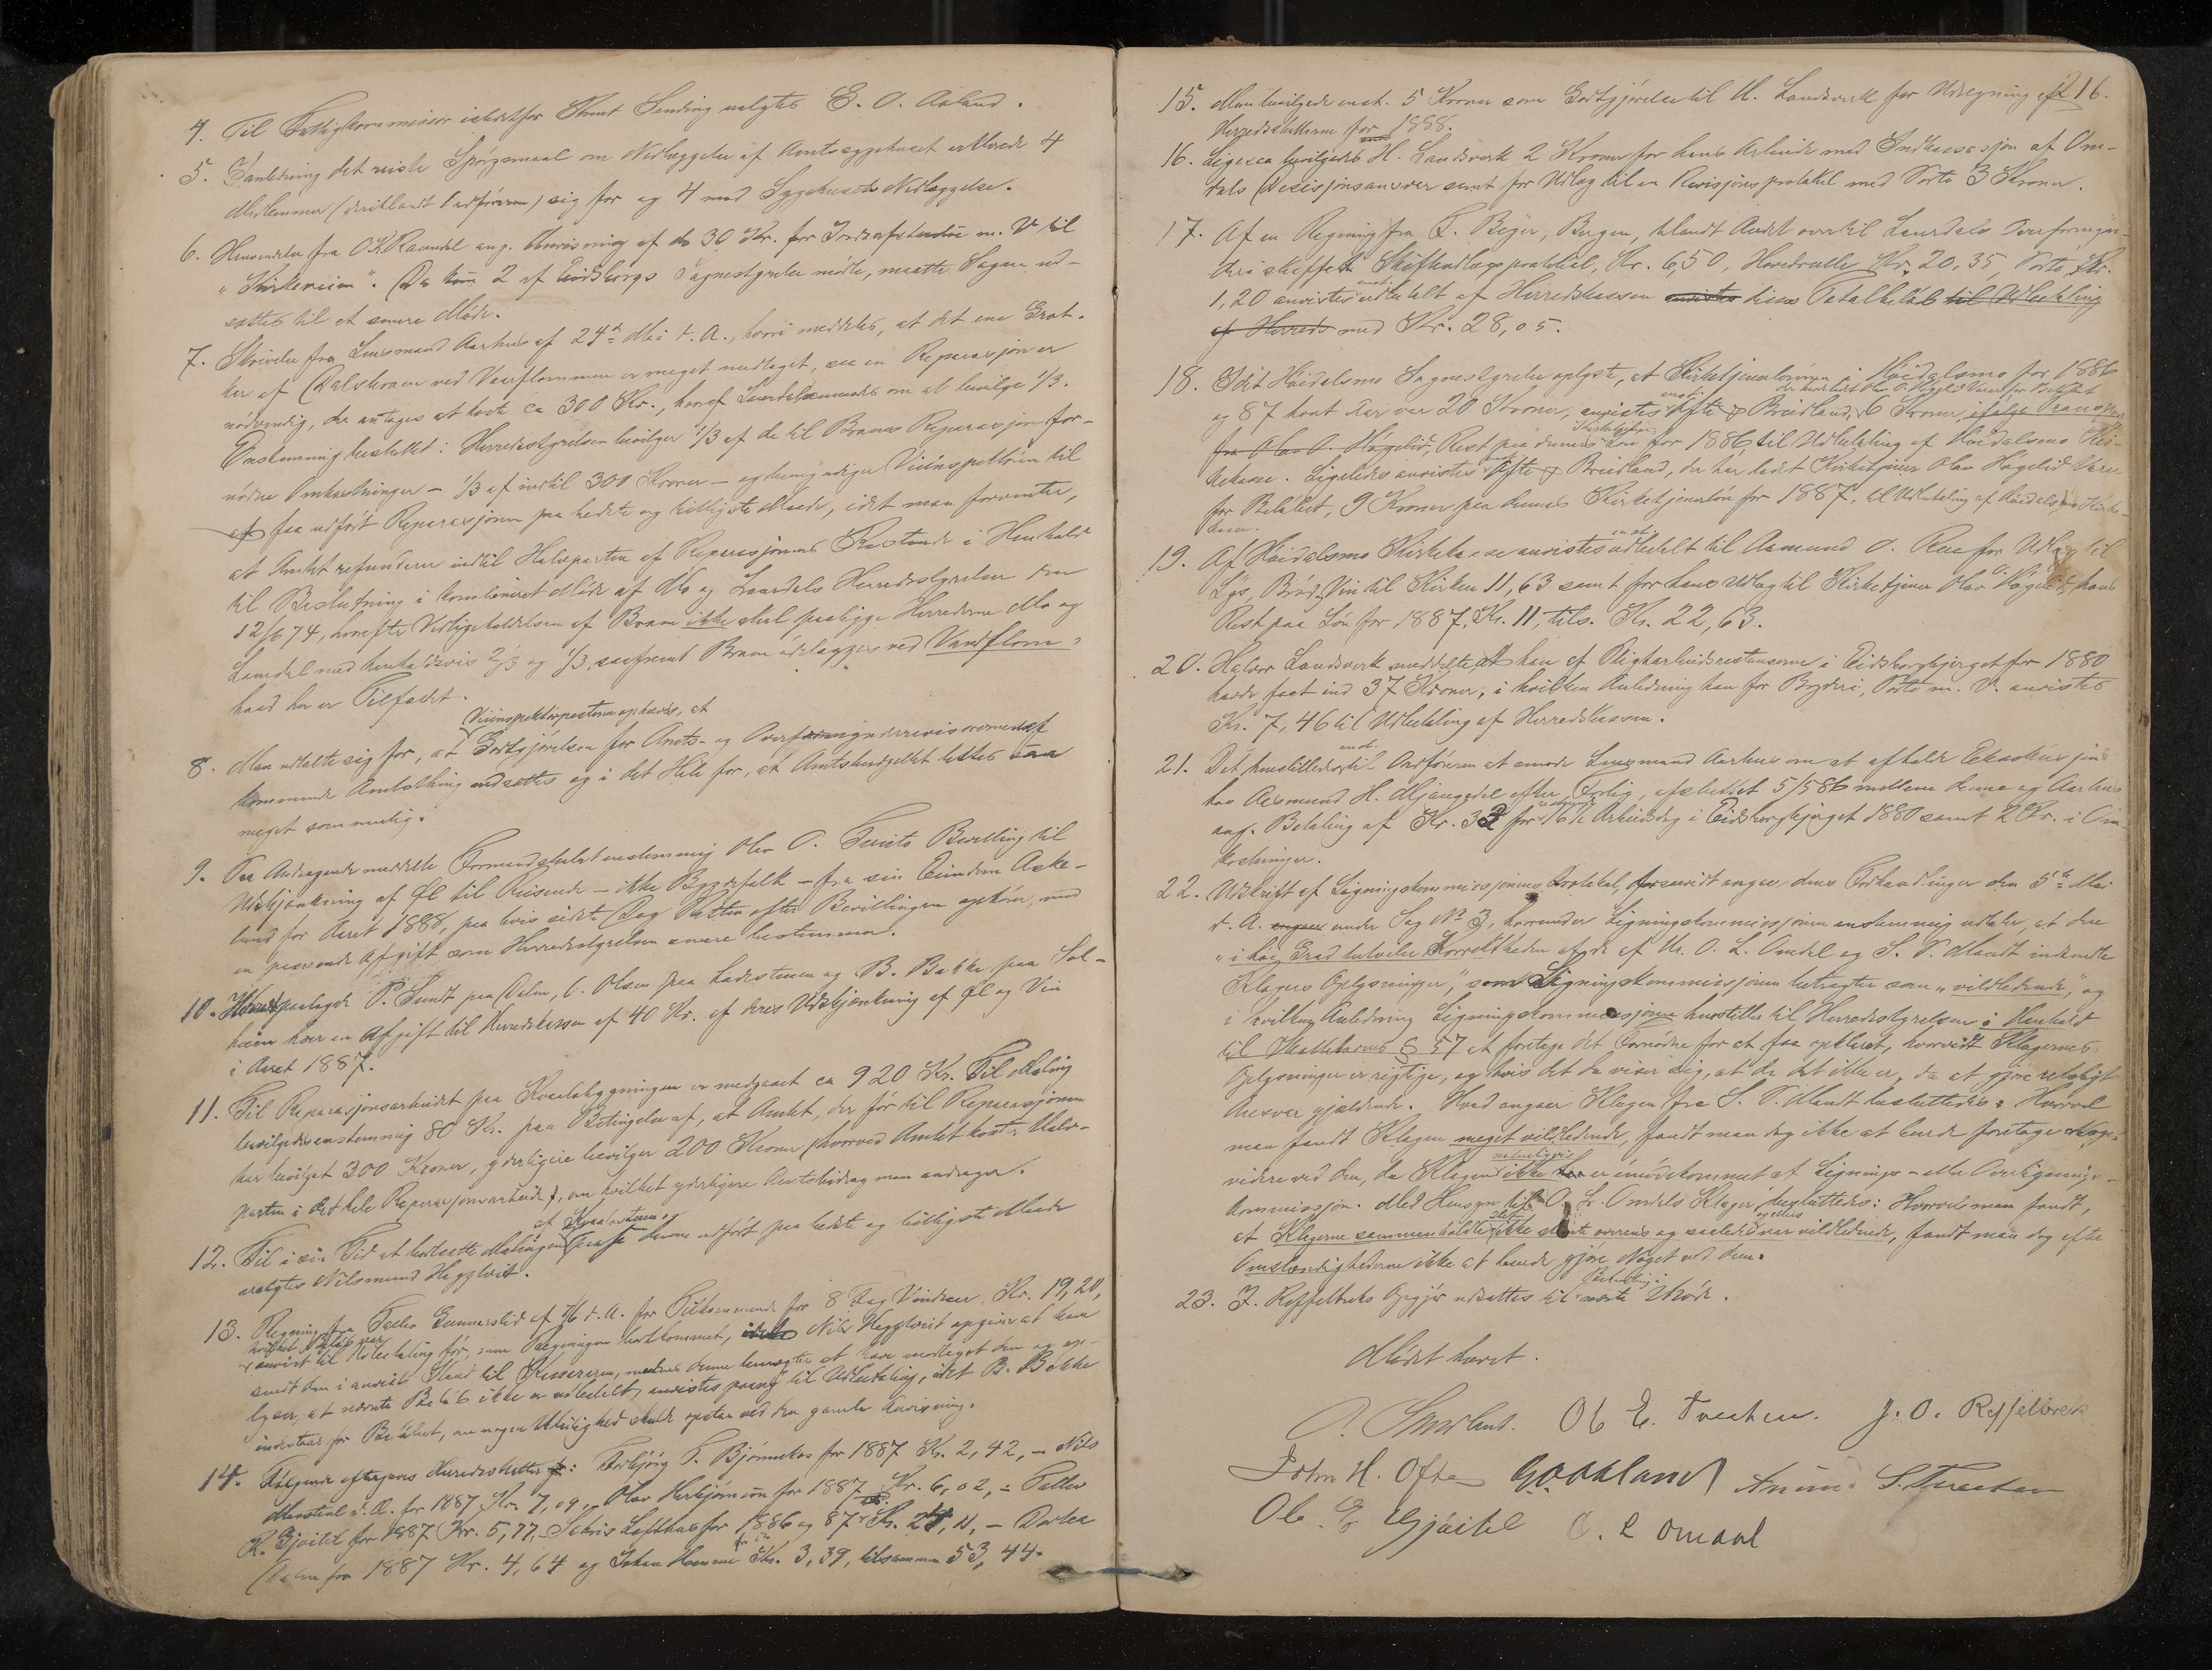 4. Til Fattigkommissær istedetfor Knut Sending valgtes E. O. Aaland.
5. I Anledning det reiste Spörgsmaal om Nedlæggelse af Amtssygehuset erklærede 4
Medlemmer (deriblandt Ordföreren) sig for og 4 mod Sygehusets Nedlæggelse.
6. Henvendelse fra O. K. Ravndal ang. Anvisning af 30 Kr. for m. V. til
"". Da kun 2 af Eidsborgs Sognestyrelse mödte, maatte Sagen ud-
sættes til et senere Möde.
7. Skrivelse fra Lensmand Aarhus af 24de Mai d. A., hvori meddeles, at det ene
kar af Dalsbroen ved Vaarflommen er meget medtaget, saa en Reparasjon er
nödvendig, der antages at koste ca 300 Kr., hvoraf om at bevilge 1/3.
Enstemmig besluttet: Herredsstyrelsen bevilger 1/3 af de til Broens Reparasjon for-
nödne Omkostninger – 1/3 af indtil 300 Kroner – og bemyndiger Veiinspektören til
at faa udfört Reparasjonen paa bedste og billigste Maade, idet man forventer,
at Amtet refunderer indtil Halvparten af Reparasjonens Kostende i Henhold
til Beslutning i kombineret Möde af Mo og Laurdals Herredsstyrelser den
12/6 74, hvorefter Vedligeholdelsen af Broen ikke skal paaligge Herrederne Mo og
Laurdal med henholdsvis 2/3 og 1/3, saafremt Broen ödelægges ved Vandflom,
hvad her er Tilfældet.
Veiinspektörposten ophæves, at
8. Man udtalte sig for, at Godtgjörelsen for Amts- og Overformynderirevisorerne af
kommende Amtsthing nedsættes og i det Hele for, at Amtsbudgettet lettes saa
meget som mulig.
9. Paa Andragende meddelte Formandskabet enstemmig Olav O. Bevilling til
Udskjænkning af Öl til Reisende – ikke Bygdefolk – fra sin Eiendom Aske-
lund for Aaret 1888, paa hvis sidste Dag Retten efter Bevillingen ophörer, mod
en passende Afgift som Herredsstyrelsen senere bestemmer.
10. paalagde P. Sundt paa Dalen, O. Olsen paa Ladestenen og B. Bakke paa Sol-
heim hver en Afgift til Herredskassen af 40 Kr. af deres Udskjænkning af Öl og Vin
i Aaret 1887.
11. Til Reparasjonsarbeidet paa bygningen er medgaaet ca 920 Kr. Til Maling
bevilgedes enstemmig 80 Kr. paa Betingelse af, at Amtet, der för til Reparasjonen
har bevilget 300 Kroner, yderligere bevilger 200 Kroner (hvorved Amtet koster Halv-
parten i det hele Reparasjonsarbeide), om hvilket yderligere Amtsbidrag man andrager.
af og
12. Til i sin Tid at bortsætte Malingen faa denne udfört paa bedste og billigste Maade
valgtes Nilsmund Heggtveit.
13. Regning fra Gunnarslid af d. A. for Tilkommende for 8 Fag Vinduer, Kr. 19,20,
hvilket Belöb var
anvist til Udbetaling för, men Regningen bortkommet, Nils Heggtveit opgiver at han
sendt den i anvist Stand til Kassereren, medens denne benægter at have modtaget den og op-
lyser, at nævnte Belöb ikke er udbetalt, anvistes paany til Udbetaling, idet B. Bakke
indestaar for Belöbet, om nogen Uleilighed skulde opstaa ved den gamle Anvisning.
14. Fölgende eftergaves Herredsskatter: Torbjörg T. Björnnekas for 1887 Kr. 2,42, – Nils
d. Æ. for 1887 Kr. 7,09, – Olav Herbjörnson for 1887 Kr. 6,02, – Tallev
K. Gjöitil for 1887 Kr. 5,77, – Lofthus for 1886 og 87 Kr. – Dortea
Dalen for 1887 Kr. 4,64 og Johan Homme for Kr. 3,39, tilsammen 53,44.
216.
15. Man bevilgede enst. 5 Kroner som Godtgjörelse til H. Landsverk for Udregning af
Herredsskatterne for 1888.
16. Ligesaa bevilgedes H. Landsverk 2 Kroner for hans Arbeide med Indkassasjon af Om-
dals Decisjonsansvar samt for Udlæg til en Revisjonsprotokol med Porto 3 Kroner.
17. Af en Regning fra F. Beyer, Bergen, blandt Andet over til Laurdals Overformyn-
deri skaffet Skiftudlægsprotokol, Kr. 6,50, Hovedrulle Kr. 20,35, Porto Kr.
enst.
1,20 anvistes udbetalt af Herredskassen anvistes hines Totalbelöb til Udbetaling
af Herreds med Kr. 28,05.
18. Idet Höidalsmo Sognestyrelse oplyste, at Kirketjenerlönnen i Höidalsmo for 1886
der har lidt Olav O. Högelid Varer for Belöbet
og 87 hvert Aar var 20 Kroner, anvistes enst. Ofte Breidland, 6 Kroner, ifölge
fra Olav O. Högelid, Rest paa dennes Lön for 1886, til Udbetaling af Höidalsmo Kir-
kekasse. Ligeledes anvistes enst. Ofte Breidland, der har ledet Kirketjener Olav Högelid Varer
for Belöbet, 9 Kroner paa dennes Kirketjenerlön for 1887, til Udbetaling af Höidalsmo Kirke-
kasse.
enst.
19. Af Höidalsmo Kirkekasse anvistes udbetalt til Aamund O. Rue for Udlæg til
Lys, Bröd, Vin til Kirken 11,63 samt for hans Udlæg til Kirketjener Olav O. Högelid, hans
Rest paa Lön for 1887, Kr. 11, tils. Kr. 22,63.
20. Halvor Landsverk meddelte, at han af Pligtarbeidsrestanserne i Eidsborgbjerget for 1880
havde faaet ind 37 Kroner, i hvilken Anledning han for Bryderi, Porto m. V. anvistes
Kr. 7,46 til Udbetaling af Herredskassen.
enst.
21. Det henstilledes til Ordföreren at anmode Lensmand Aarhus om at afholde Eksekusjon
hos Aasmund H. Mjaugedal efter Forlig, afsluttet 5/5 86 mellem denne og Aarhus
ang. Betaling af Kr. 32 for 16 Arbeidsdag i Eidsborgbjerget 1880 samt 2 Kr. i Om-
kostninger.
22. Udskrift af Ligningskommissjonens Protokol, forsaavidt angaar dens Forhandlinger den 5te Mai
d. A. under Sag No 3, hvorunder Ligningskommissjonen enstemmig udtaler, at den
"i höi Grad betvivler Korrektheden af de af Hr. O. L. Omdal og S. P. Mandt indsendte
Klagers Oplysninger", som Ligningskommissjonen betragter som "vildledende", og
i hvilken Anledning Ligningskommissjonen henstiller til Herredsstyrelsen i Henhold
til Skattelovens § 57 at foretage det Fornödne for at faa opklaret, hvorvidt Klagernes
Oplysninger er rigtige, og hvis det da viser sig, at de det ikke er, da at gjöre retsligt
Ansvar gjældende. Hvad angaar Klagen fra S. P. Mandt besluttedes: Hvorvel
man fandt Klagen meget vildledende, fandt man dog ikke at burde foretage Noget
videre ved den, da Klagen naturligvis ikke er imödekommet af Lignings- eller Overlignings-
kommissjon. Med Hensyn til O. L. Omdals Klager besluttedes: Hvorvel man fandt,
at Klagerne sammenholdte ikke stemte overens og saaledes var vildledende, fandt man dog efter
Omstændighederne ikke at burde gjöre Noget ved dem.
Behandling i
23. J. Reffelbræks Opgjör udsattes til næste Möde.
Mödet hævet.
O. Smörlant. Ol. E. Tveeten. J. O. Reffelbræk
John H. Ofte G. O. Aaland Anund S. Tveeten
Ol. E. Gjöitil O. L. Omdal